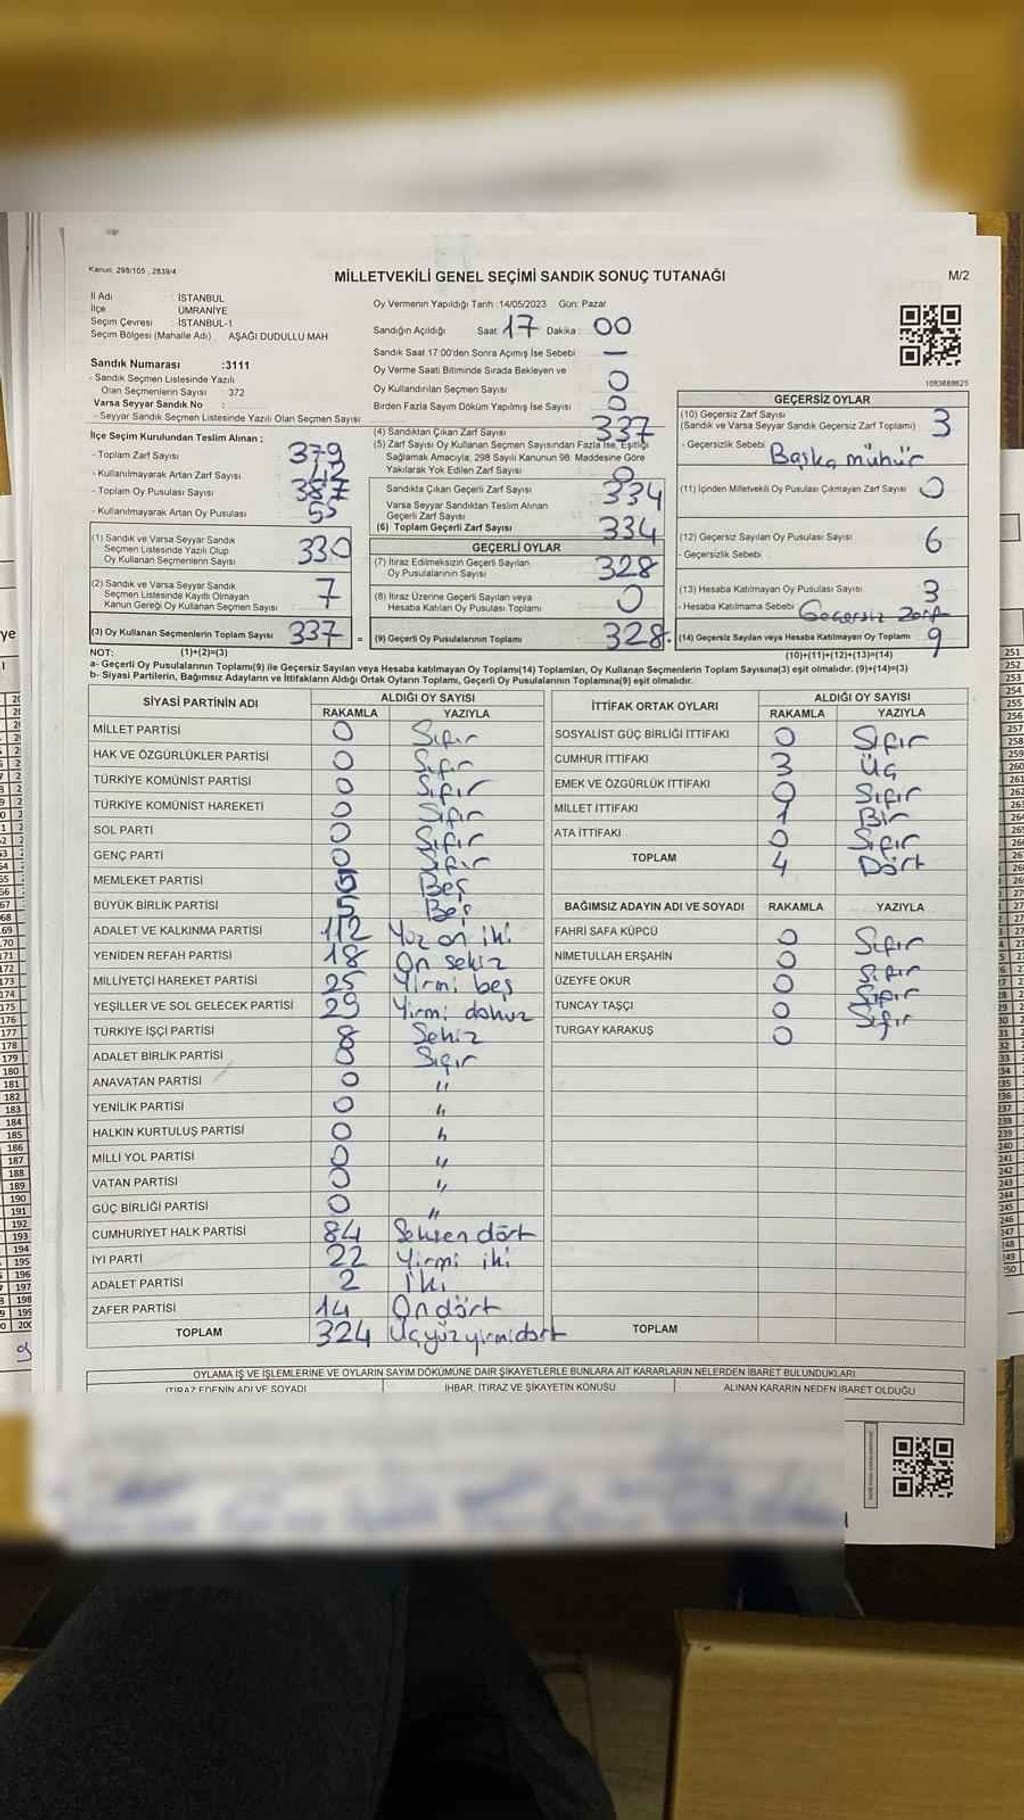 Kanun: 298/105 , 2839/4
MİLLETVEKİLİ GENEL SEÇİMİ SANDIK SONUÇ TUTANAĞI
M/2
İl Adı : İSTANBUL
İlçe : ÜMRANİYE
Seçim Çevresi : İSTANBUL-1
Seçim Bölgesi (Mahalle Adı) : AŞAĞI DUDULLU MAH
Sandık Numarası :3111
- Sandık Seçmen Listesinde Yazılı
Olan Seçmenlerin Sayısı : 372
Varsa Seyyar Sandık No :
- Seyyar Sandık Seçmen Listesinde Yazılı Olan Seçmen Sayısı
Oy Vermenin Yapıldığı Tarih :14/05/2023 Gün: Pazar
Sandığın Açıldığı Saat: 17 Dakika: 00
Sandık Saat 17:00'den Sonra Açımış İse Sebebi —
Oy Verme Saati Bitiminde Sırada Bekleyen ve
Oy Kullandırılan Seçmen Sayısı 0
Birden Fazla Sayım Döküm Yapılmış İse Sayısı 0
1083888625
İlçe Seçim Kurulundan Teslim Alınan ;
- Toplam Zarf Sayısı 379
- Kullanılmayarak Artan Zarf Sayısı 42
- Toplam Oy Pusulası Sayısı 387
- Kullanılmayarak Artan Oy Pusulası 55
(1) Sandık ve Varsa Seyyar Sandık
Seçmen Listesinde Yazılı Olup
Oy Kullanan Seçmenlerin Sayısı 330
(2) Sandık ve Varsa Seyyar Sandık
Seçmen Listesinde Kayıtlı Olmayan
Kanun Gereği Oy Kullanan Seçmen Sayısı 7
(3) Oy Kullanan Seçmenlerin Toplam Sayısı 337 =
(4) Sandıktan Çıkan Zarf Sayısı 337
(5) Zarf Sayısı Oy Kullanan Seçmen Sayısından Fazla İse, Eşitliği
Sağlamak Amacıyla; 298 Sayılı Kanunun 98. Maddesine Göre
Yakılarak Yok Edilen Zarf Sayısı 0
Sandıkta Çıkan Geçerli Zarf Sayısı 334
Varsa Seyyar Sandıktan Teslim Alınan
Geçerli Zarf Sayısı
(6) Toplam Geçerli Zarf Sayısı 334
GEÇERLİ OYLAR
(7) İtiraz Edilmeksizin Geçerli Sayılan
Oy Pusulalarının Sayısı 328
(8) İtiraz Üzerine Geçerli Sayılan veya
Hesaba Katılan Oy Pusulası Toplamı 0
(9) Geçerli Oy Pusulalarının Toplamı 328
GEÇERSİZ OYLAR
(10) Geçersiz Zarf Sayısı
(Sandık ve Varsa Seyyar Sandık Geçersiz Zarf Toplamı) 3
- Geçersizlik Sebebi Başka mühür
(11) İçinden Milletvekili Oy Pusulası Çıkmayan Zarf Sayısı 0
(12) Geçersiz Sayılan Oy Pusulası Sayısı 6
- Geçersizlik Sebebi
(13) Hesaba Katılmayan Oy Pusulası Sayısı 3
- Hesaba Katılmama Sebebi Geçersiz Zarf
(14) Geçersiz Sayılan veya Hesaba Katılmayan Oy Toplamı 9
NOT: (1)+(2)=(3) (10)+(11)+(12)+(13)=(14)
a- Geçerli Oy Pusulalarının Toplamı(9) ile Geçersiz Sayılan veya Hesaba katılmayan Oy Toplam(14) Toplamları, Oy Kullanan Seçmenlerin Toplam Sayısına(3) eşit olmalıdır. (9)+(14)=(3)
b- Siyasi Partilerin, Bağımsız Adayların ve İttifakların Aldığı Ortak Oyların Toplamı, Geçerli Oy Pusulalarının Toplamına(9) eşit olmalıdır.
SİYASİ PARTİNİN ADI ALDIĞI OY SAYISI
RAKAMLA YAZIYLA
MİLLET PARTİSİ 0 Sıfır
HAK VE ÖZGÜRLÜKLER PARTİSİ 0 Sıfır
TÜRKİYE KOMÜNİST PARTİSİ 0 Sıfır
TÜRKİYE KOMÜNİST HAREKETİ 0 Sıfır
SOL PARTİ 0 Sıfır
GENÇ PARTİ 0 Sıfır
MEMLEKET PARTİSİ 5 Beş
BÜYÜK BİRLİK PARTİSİ 5 Beş
ADALET VE KALKINMA PARTİSİ 112 Yüz on iki
YENİDEN REFAH PARTİSİ 18 On sekiz
MİLLİYETÇİ HAREKET PARTİSİ 25 Yirmi beş
YEŞİLLER VE SOL GELECEK PARTİSİ 29 Yirmi dokuz
TÜRKİYE İŞÇİ PARTİSİ 8 Sekiz
ADALET BİRLİK PARTİSİ 0 Sıfır
ANAVATAN PARTİSİ 0 "
YENİLİK PARTİSİ 0 "
HALKIN KURTULUŞ PARTİSİ 0 "
MİLLİ YOL PARTİSİ 0 "
VATAN PARTİSİ 0 "
GÜÇ BİRLİĞİ PARTİSİ 0 "
CUMHURİYET HALK PARTİSİ 84 Seksen dört
İYİ PARTİ 22 Yirmi iki
ADALET PARTİSİ 2 İki
ZAFER PARTİSİ 14 On dört
TOPLAM 324 Üçyüzyirmidört
İTTİFAK ORTAK OYLARI ALDIĞI OY SAYISI
RAKAMLA YAZIYLA
SOSYALİST GÜÇ BİRLİĞİ İTTİFAKI 0 Sıfır
CUMHUR İTTİFAKI 3 Üç
EMEK VE ÖZGÜRLÜK İTTİFAKI 0 Sıfır
MİLLET İTTİFAKI 1 Bir
ATA İTTİFAKI 0 Sıfır
TOPLAM 4 Dört
BAĞIMSIZ ADAYIN ADI VE SOYADI RAKAMLA YAZIYLA
FAHRİ SAFA KÜPCÜ 0 Sıfır
NİMETULLAH ERŞAHİN 0 Sıfır
ÜZEYFE OKUR 0 Sıfır
TUNCAY TAŞÇI 0 Sıfır
TURGAY KARAKUŞ 0
TOPLAM
OYLAMA İŞ VE İŞLEMLERİNE VE OYLARIN SAYIM DÖKÜMÜNE DAİR ŞİKAYETLERLE BUNLARA AİT KARARLARIN NELERDEN İBARET BULUNDUKLARI
İTİRAZ EDENİN ADI VE SOYADI İHBAR, İTİRAZ VE ŞİKAYETİN KONUSU ALINAN KARARIN NEDEN İBARET OLDUĞU